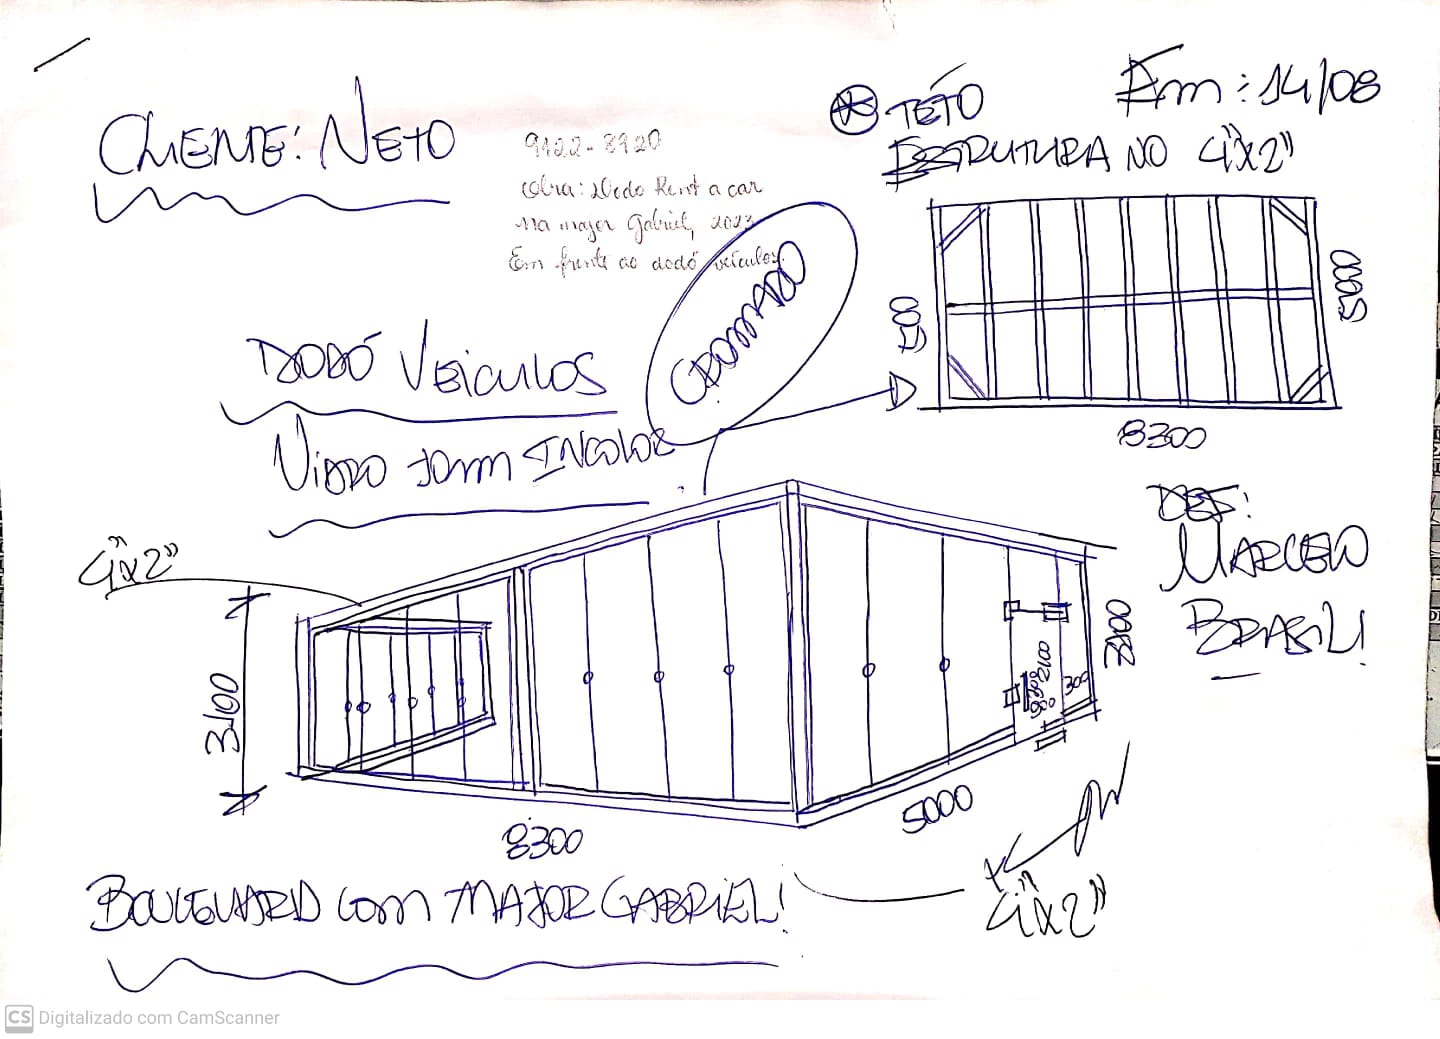 CLIENTE: NETO
9122-8920
Obra: Dodo Rent a car
Na major Gabriel, 2023
Em frente ao dodó veículos.
* TETO
ESTRUTURA NO 4"x2"
Em: 14/08
5000
8300
CROMADO
DODÓ VEICULOS
VIDRO 10mm INCOLOR
4"x2"
3100
8300
5000
2100
300
3100
DEF:
MARCELO
BRASIL!
BOULEVARD COM MAJOR GABRIEL!
4"x2"
CS Digitalizado com CamScanner